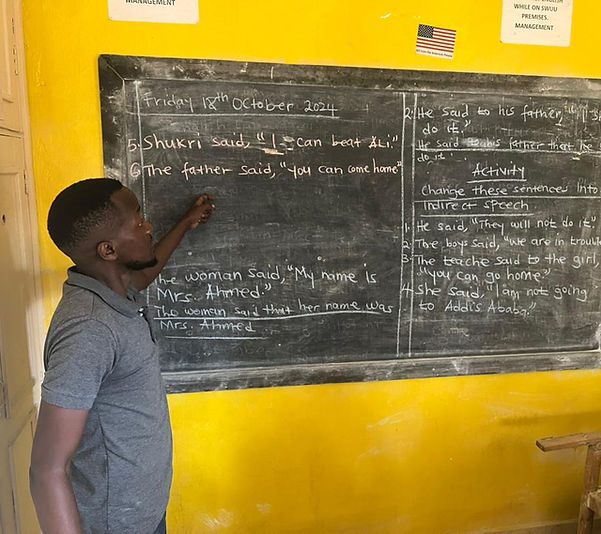 MANAGEMENT
ENGLISH
WHILE ON SWUU
PREMISES.
MANAGEMENT
Friday 18th October 2024
5. Shukri said, "I can beat Ali."
6 The father said, "You can come home"
The woman said, "My name is
Mrs. Ahmed."
The woman said that her name was
Mrs. Ahmed
2. He said to his father, "I'll
do it."
He said to his father that he
do it.
Activity
Change these sentences into
indirect speech
1. He said, "They will not do it."
2. The boys said, "We are in trouble
3. The teache said to the girl,
"you can go home."
4. She said, "I am not going
to Addis Ababa."